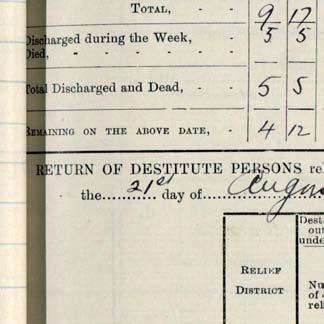 TOTAL, - - 9 17
Discharged during the Week, - 5 5
Died, - - - - - -
Total Discharged and Dead, - - 5 5
REMAINING ON THE ABOVE DATE, - 4 12
RETURN OF DESTITUTE PERSONS rel
the 21st day of Augus
Dest
out
unde
RELIEF
DISTRICT
Nu
of
reli